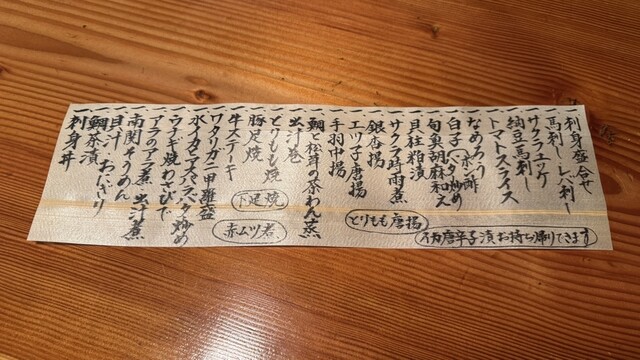 一 刺身盛合せ
一 馬刺し レバ刺し
一 サクラユッケ
一 納豆馬刺し
一 トマトスライス
一 なめろう
一 白子 ポン酢 バター炒め
一 旬奥胡麻和え
一 貝柱粕漬
一 サクラ時雨煮
一 銀杏揚
一 エツ子唐揚
一 手羽中揚
一 鯛と松茸の茶わん蒸
一 出汁巻
一 とりもも焼
一 豚足焼
一 牛ステーキ
一 ワタリガニ甲羅盛
一 水イカアスパラバター炒め
一 ウナギ焼わさびで
一 アラのアラ煮 出汁煮
一 南関そうめん
一 貝汁・おにぎり
一 鯛茶漬
一 刺身丼
イカ唐辛子漬お持ち帰りできます
とりもも唐揚
下足焼
赤ムツ煮